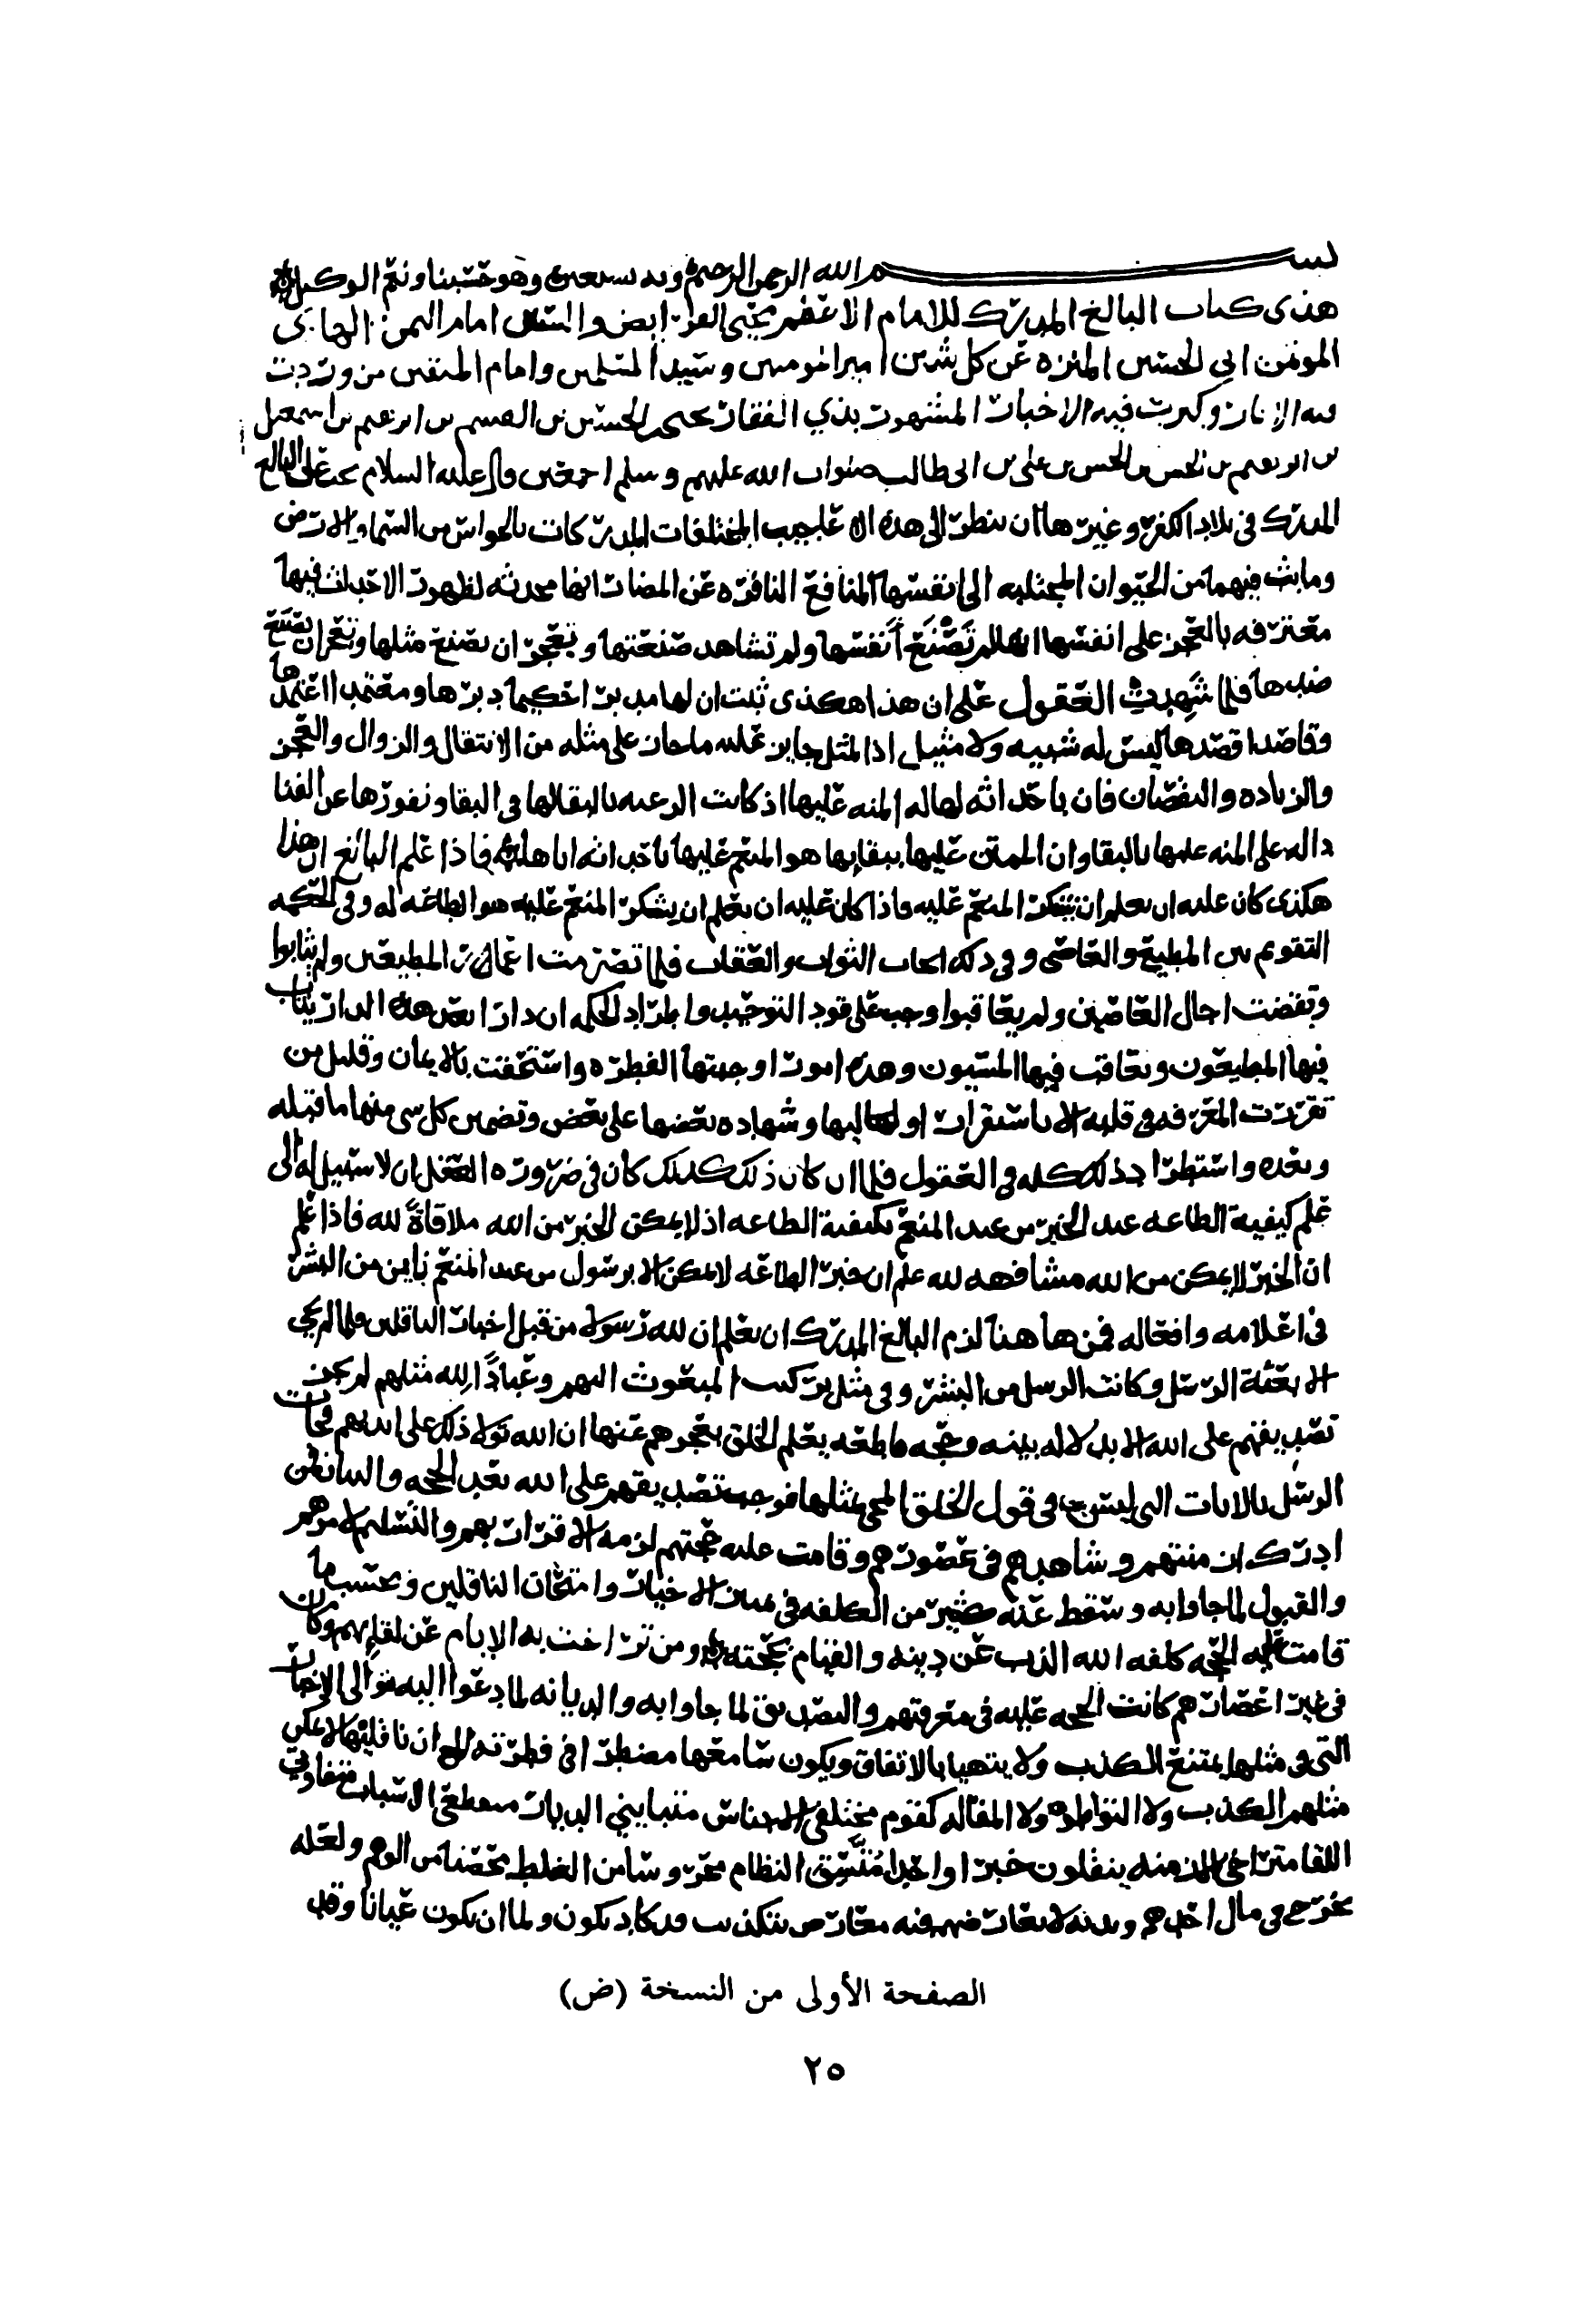 بسم الله الرحمن الرحيم وبه نستعين وهو حسبنا ونعم الوكيل
هذى كتاب البالغ المدرك للامام الاعظم محيي الفرايض والسنن امام اليمن الهادى
المؤتمن ابي الحسين المنزه عن كل شين امير المومنين وسيد المسلمين وامام المتقين من وردت
فيه الاثار وكبرت فيه الاخبار المشهور بذي الفقار يحيى بن الحسين بن القسم بن ابرهيم بن اسمعيل
بن ابرهيم بن الحسن بن الحسن بن على بن ابى طالب صلوات الله عليهم وسلم اجمعين قال عليه السلام يجب على البالغ
المدرك في بلاد الكفر وغيرها ان ينظر الى هذه الاعاجيب المختلفات المدركات بالحواس من السماء والارض
وما بث فيهما من الحيوان المجتلبه الى انفسها المنافع النافره عن المضار انها محدثه لظهور الاحداث فيها
معترفه بالعجز على انفسها انها لم تصنع أنفسها ولم تشاهد صنعتها وتعجز ان تصنع مثلها وتعجز ان تصنع
ضدها فلما شهدت العقول على ان هذا هكذى ثبت ان لها مدبرا حكيما دبرها ومعتمدا اعتمدها
وقاصدا قصدها ليس له شبيه ولا مثيل اذ المثل جايز عليه ما جاز على مثله من الانتقال والزوال والعجز
والزياده والنقصان فان باحداثه لها له المنه عليها اذ كانت الرعبه بالبقالها في البقا ونفورها عن الفنا
داله على المنه عليها بالبقا وان الممتن عليها ببقايها هو المنعم عليها باحداثه اياها فاذا علم البالغ ان هذا
هكذى كان عليه ان يعلم ان يشكر المنعم عليه فاذا كان عليه ان يعلم ان يشكر المنعم عليه هو الطاعه له وفي الحكمه
التقويم بين المطيع والعاصى وفي ذلك ايجاب الثواب والعقاب فلما تصرمت اعمار المطيعين ولم يثابوا
وتقضت اجال العاصين ولم يعاقبوا وجب على قود التوحيد واطراد الحكمه ان دارا بعد هذه الدار يثاب
فيها المطيعون ويعاقب فيها المسيون وهذه امور اوجبتها الفطره واستحقت بالايمان وقليل من
تفردت المعرفه في قلبه الا باستقرار اولها اليها وشهاده بعضها على بعض وتضمين كل شي منها ما قبله
وبعده واستطرا دذلك كله في العقول فلما ان كان ذلك كذلك كان في ضروره العقل ان لا سبيل له الى
علم كيفية الطاعه عند الخبر من عند المنعم بكيفية الطاعه اذ لا يمكن الخبر من الله ملاقاةً لله فاذا علم
ان الخبر لا يمكن من الله مشافهه لله علم ان خبر الطاعه لا يمكن الا برسول من عند المنعم باين من البشر
في اعلامه وافعاله فمن ها هنا لزم البالغ المدرك ان يعلم ان لله رسولا من قبل اخبار الناقلين فلما لم يجي
الا بعثة الرسل وكانت الرسل من البشر وفي مثل تركيب المبعوث اليهم وعبادًا لله مثلهم لم يكن
تصديقهم على الله الا بدلاله بينه وحجه قاطعه يعلم الخلق بعجزهم عنها ان الله تولا ذلك على ايديهم فجات
الرسل بالايات التى ليس في قول الخلق المجى بمثلها فوجب تصديقهم على الله بعد الحجه والبيان فمن
ادرك ازمنتهم وشاهدهم في عصورهم وقامت عليه حجتهم لزمه الاقرار بهم والتسليم لامرهم
والقبول لما جاوا به وسقط عنه كثير من الكلفه في تمييز الاخبار وامتحان الناقلين وبحسب ما
قامت عليه الحجه كلفه الله الذب عن دينه والقيام بحجته ومن تراخت به الايام عن لقايهم وكان
في غير اعصارهم كانت الحجه عليه في معرفتهم والتصديق لما جاوا به والديانه لما دعوا اليه تواتر الاخبار
التى في مثلها يمتنع الكذب ولا يتهيا بالاتفاق ويكون سامعها مضطرا في فطرته ان ناقليها لا يمكن
مثلهم الكذب ولا التواطؤ ولا المقاله كقوم مختلفى الاجناس متبايني الديار منقطعى الاسباب متفاوتي
اللقا متراخى الازمنه ينقلون خبرا واحدا مُتَّسِق النظام محروسا من الغلط محصنا من الوهم ولعله
يخرج في مال احدهم وبدنه لا يعارضهم فيه معارض بتكذيب قد كاد يكون ولما ان يكون عيانا وقد
الصفحة الأولى من النسخة (ض)
٢٥